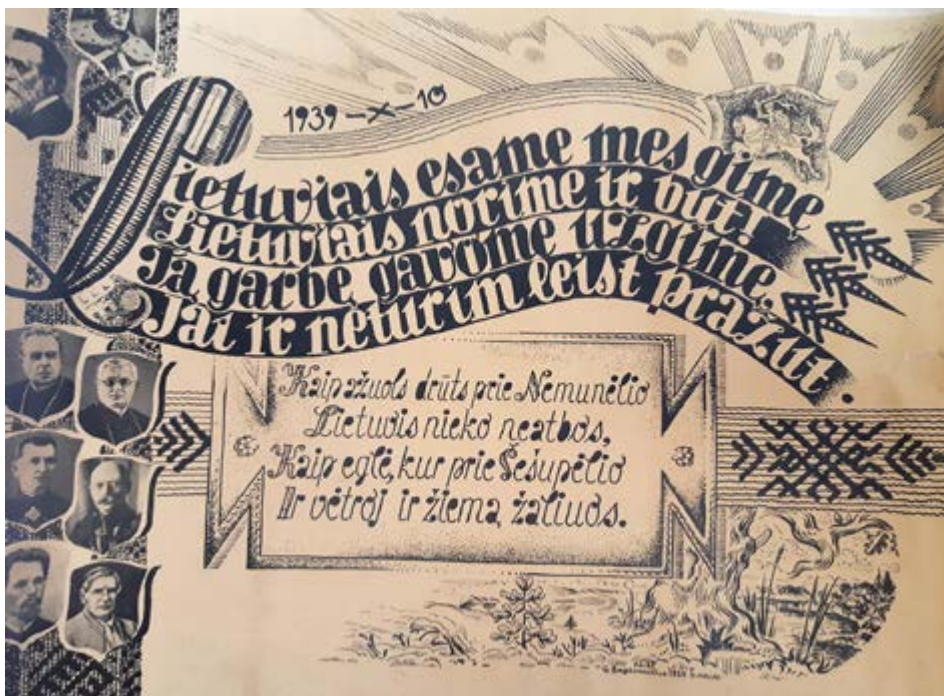 1939-X-10
Lietuviais esame mes gimę
Lietuviais norime ir but!
Tą garbę gavome užgimę,
Jai ir neturim leist pražut.
Kaip ažuols drūts prie Nemunėlio
Lietuvis nieko neatbos,
Kaip eglė, kur prie Šešupėlio
Ir vėtroj ir žiemą žaliuos.